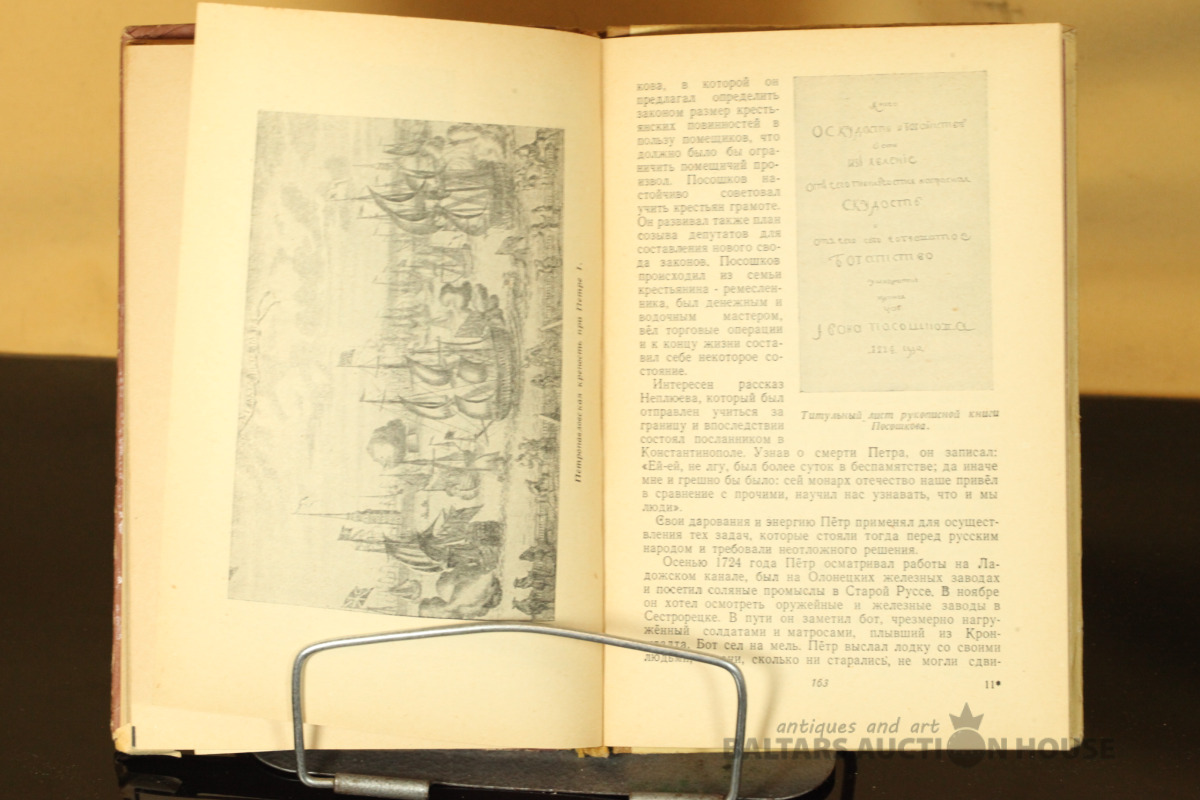 Петропавловская крепость при Петре I.
кова, в которой он
предлагал определить
законом размер кресть-
янских повинностей в
пользу помещиков, что
должно было бы огра-
ничить помещичий про-
извол. Посошков на-
стойчиво советовал
учить крестьян грамоте.
Он развивал также план
созыва депутатов для
составления нового сво-
да законов. Посошков
происходил из семьи
крестьянина - ремеслен-
ника, был денежным и
водочным мастером,
вёл торговые операции
и к концу жизни соста-
вил себе некоторое со-
стояние.
Интересен рассказ
Неплюева, который был
отправлен учиться за
границу и впоследствии
состоял посланником в
Титульный лист рукописной книги
Посошкова.
Константинополе. Узнав о смерти Петра, он записал:
«Ей-ей, не лгу, был более суток в беспамятстве; да иначе
мне и грешно бы было: сей монарх отечество наше привёл
в сравнение с прочими, научил нас узнавать, что и мы
люди».
Свои дарования и энергию Пётр применял для осущест-
вления тех задач, которые стояли тогда перед русским
народом и требовали неотложного решения.
Осенью 1724 года Пётр осматривал работы на Ла-
дожском канале, был на Олонецких железных заводах
и посетил соляные промыслы в Старой Руссе. В ноябре
он хотел осмотреть оружейные и железные заводы в
Сестрорецке. В пути он заметил бот, чрезмерно нагру-
жённый солдатами и матросами, плывший из Крон-
Бот сел на мель. Пётр выслал лодку со своими
сколько ни старались, не могли сдви-
163
11*
antiques and art
BALTARS AUCTION HOUSE